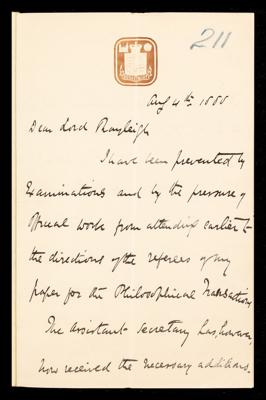 211
Aug 4th, 1888
Dear Lord Rayleigh
I have been prevented by
Examinations and by the pressure of
official work from attending earlier to
the directions of the referees of my
paper for the Philosophical Transactions
The assistant secretary has, however,
now received the necessary additions.